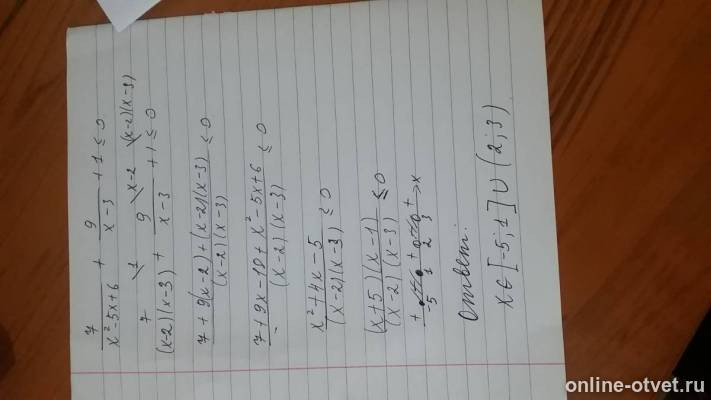 7/(x²-5x+6) + 9/(x-3) + 1 ≤ 0
7/((x-2)(x-3)) + 9/(x-3) + 1 ≤ 0
1 x-2 (x-2)(x-3)
(7+9(x-2)+(x-2)(x-3))/((x-2)(x-3)) ≤ 0
(7+9x-18+x²-5x+6)/((x-2)(x-3)) ≤ 0
(x²+4x-5)/((x-2)(x-3)) ≤ 0
((x+5)(x-1))/((x-2)(x-3)) ≤ 0
+ - + - + x
-5 1 2 3
Ответ:
x∈[-5;1]∪(2;3)
online-otvet.ru